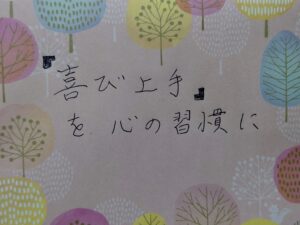 『喜び上手』
を心の習慣に